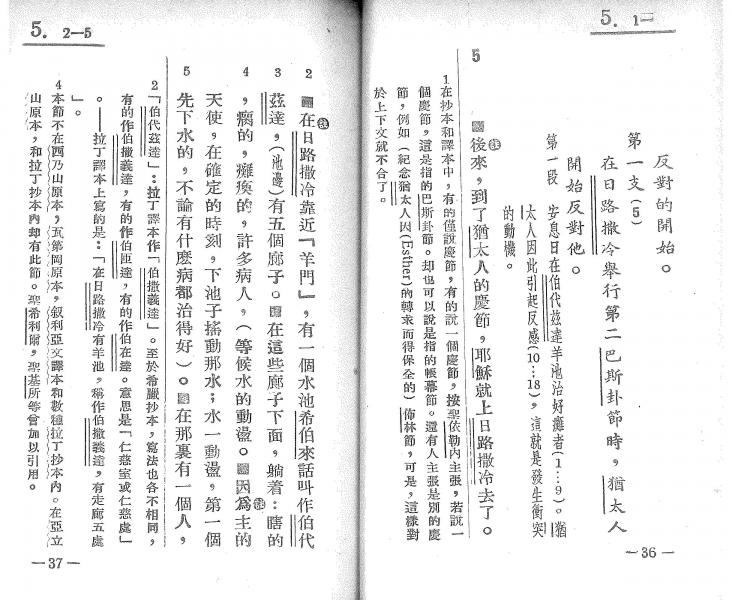 5. 1—
反對的開始。
第一支(5)
在日路撒冷舉行第二巴斯卦節時，猶太人
開始反對他。
第一段 安息日在伯代茲達羊池治好癱者(1…9)。猶
太人因此引起反感(10…18)，這就是發生衝突
的動機。
5
後來，到了猶太人的慶節，耶穌就上日路撒冷去了。
1在抄本和譯本中，有的僅說慶節，有的說一個慶節，按聖依勒內主張，若說一
個慶節，這是指的巴斯卦節。却也可以說是指的帳幕節。還有人主張是別的慶
節，例如(紀念猶太人因(Esther)的轉求而得保全的)佈林節，可是，這樣對
於上下文就不合了。
—36—
5. 2—5
2 在日路撒冷靠近「羊門」，有一個水池希伯來話叫作伯代
3 茲達，(池邊)有五個廊子。在這些廊子下面，躺着：瞎的
4 ，瘸的，癱瘓的，許多病人，(等候水的動盪。因爲主的
天使，在確定的時刻，下池子搖動那水；水一動盪，第一個
5 先下水的，不論有什麽病都治得好)。在那裏有一個人，
2「伯代茲達」：拉丁譯本作「伯撒義達」。至於希臘抄本，寫法也各不相同，
有的作伯撒義達，有的作伯匝達，有的作伯在達。意思是「仁慈室或仁慈處」
。——拉丁譯本上寫的是：「在日路撒冷有羊池，稱作伯撒義達，有走廊五處
」。
4本節不在西乃山原本，瓦第岡原本，叙利亞文譯本和數種拉丁抄本內。在亞立
山原本，和拉丁抄本內却有此節。聖希利爾，聖基所等曾加以引用。
—37—